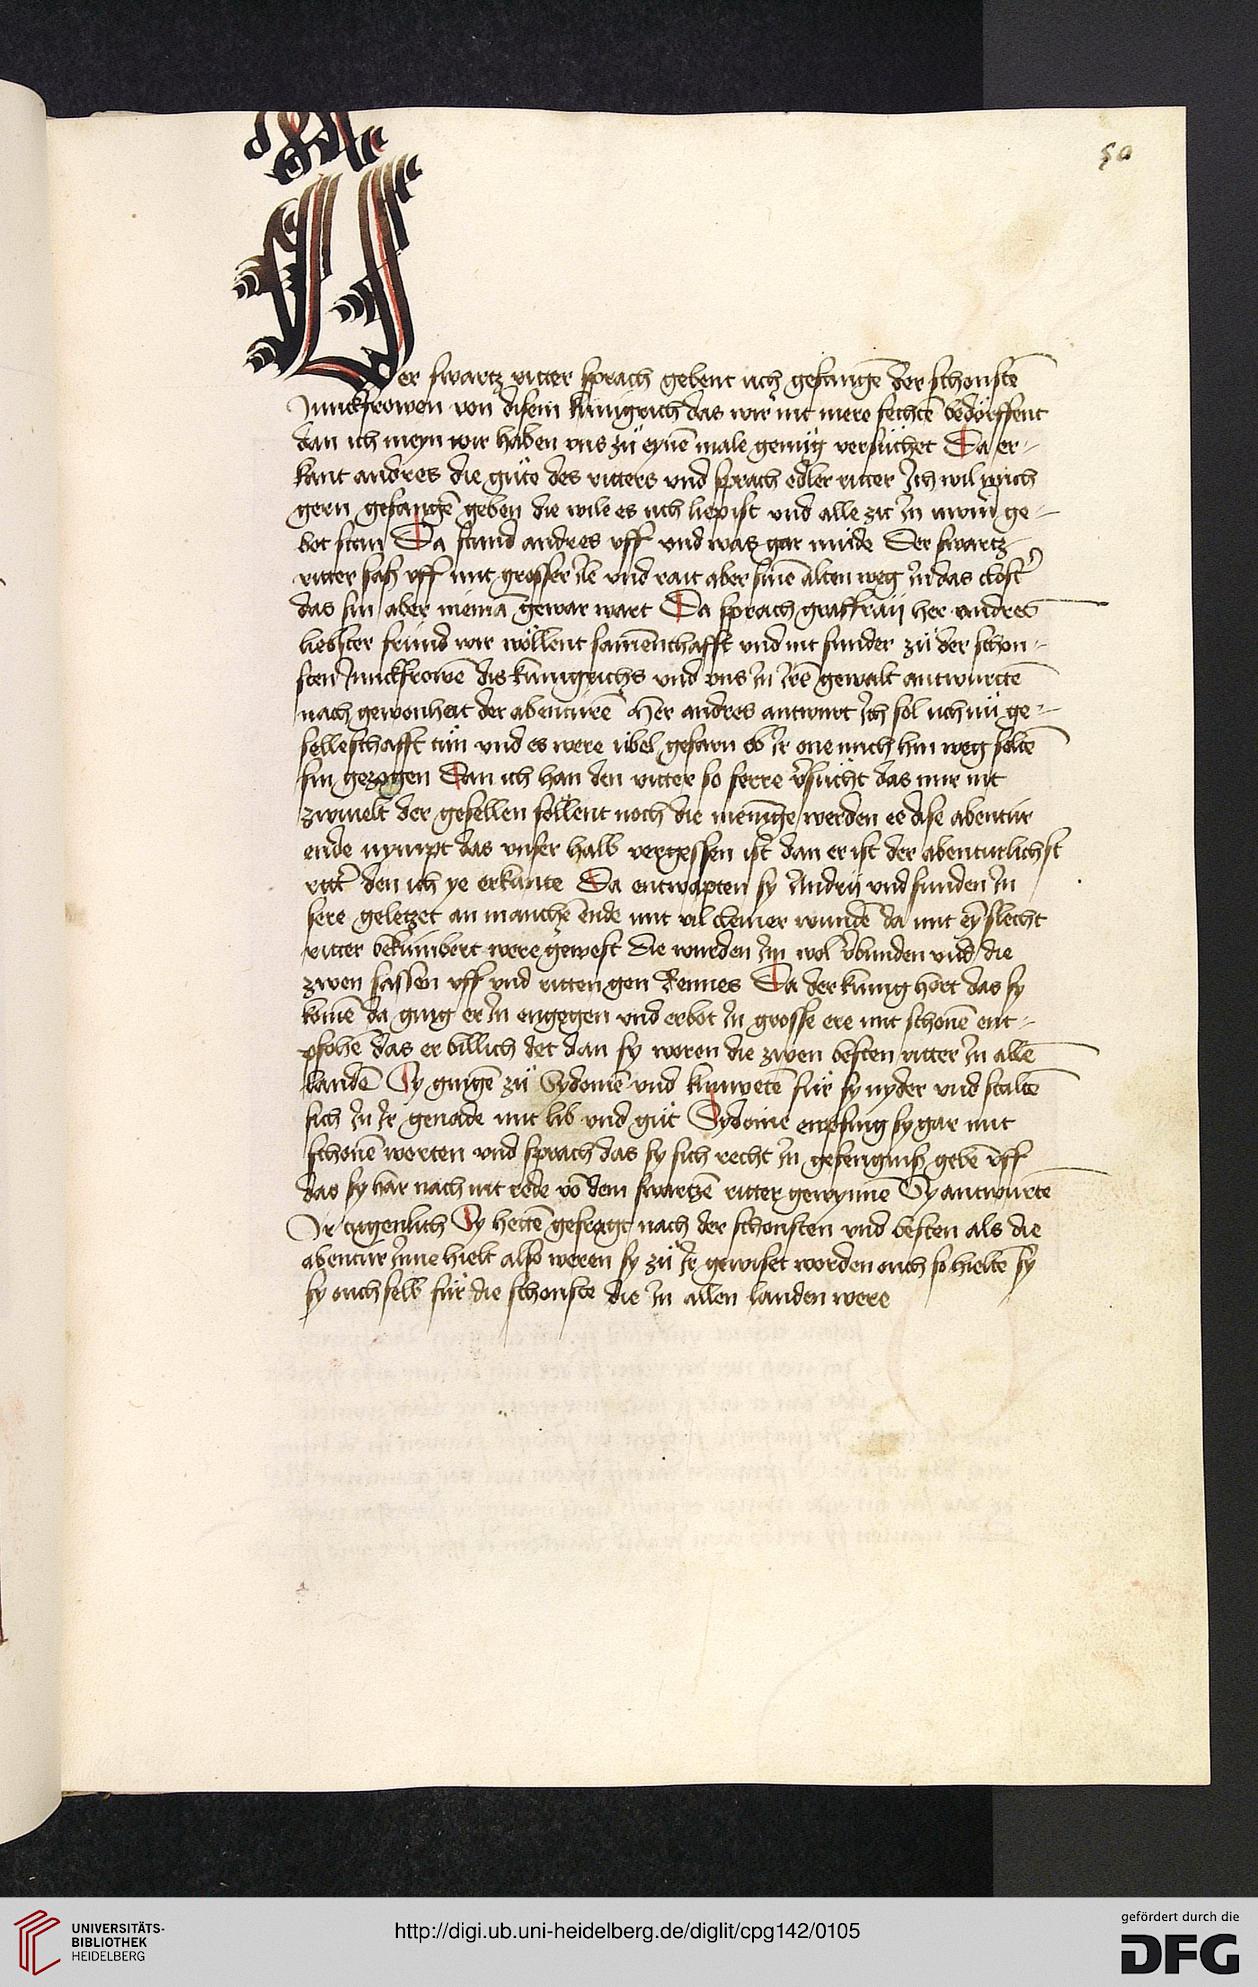 50
Der swartz ritter sprach gebent uch gefangē der schonstē
Junckfrowen von disem kunigrich das wir nit mere fechtē bedörffent
dan ich meyn wir haben vns zü eynē male genüg versüchet Da er-
kant andres die güte des ritters vnd sprach edler ritter Ich wil mich
gern gefangē geben die wile es uch liep ist vnd alle zit In uwin ge-
bot sten Da stund andres vff vnd was gar müde Der swartz
ritter saß vff mit grosser Ile vnd rait aber sinē alten weg In das clost̄
das sin aber niemā gewar wart Da sprach graff raij her andres
liebster fründ wir wöllent samēnthafft vnd nit sunder zü der schon-
sten Junckfrowē dis kunigrichs vnd vns In Irē gewalt antwurtē
nach gewonheit der abenturē Her andres antwurt Ich sol uch nü ge-
selleschafft tün vnd es were übel gefarn ob Ir one mich hin weg soltē
sin gezogen Dan ich han den ritter so ferre v̄sücht das mir nit
zwiuelt der gesellen söllent noch die menige werden ee dise abentür
ende nympt das vnser halb vergessen ist dan er ist der abenturlichst
ritt̄ den ich ye erkante Da entwapten sy Andrij vnd funden In
sere geletzet an manchē ende mit vil cleiner wundē da mit eȳ slecht
ritter bekümbert were gewest Die wurden Im wol v̄bunden vnd die
zwen sassen vff vnd ritten gen Rennes Da der kunig hört das sy
komē da ging er In engegen vnd erbot In grosse ere mit schonē ent-
pfohē das er billich det dan sy woren die zwen besten ritter In allē
landē Sy gingē zü Sydoniē vnd knuwetē für sy nyder vnd staltē
sich In Ir genade mit lib vnd güt Sydonie enpfing sy gar mit
schonē worten vnd sprach das sy sich recht In gefengniß gebē vff
das sy har nach nit rede vō dem swartzē ritter gewynnē Sy antwurtē
Ir tugenlich Sy hettē gefragt nach der schonsten vnd besten als die
abentür Inne hielt also weren sy zü Ir gewiset worden ouch so hielte sy
sy ouch selb für die schonste die In allen landen were
UNIVERSITÄTS-
BIBLIOTHEK
HEIDELBERG
http://digi.ub.uni-heidelberg.de/diglit/cpg142/0105
gefördert durch die
DFG